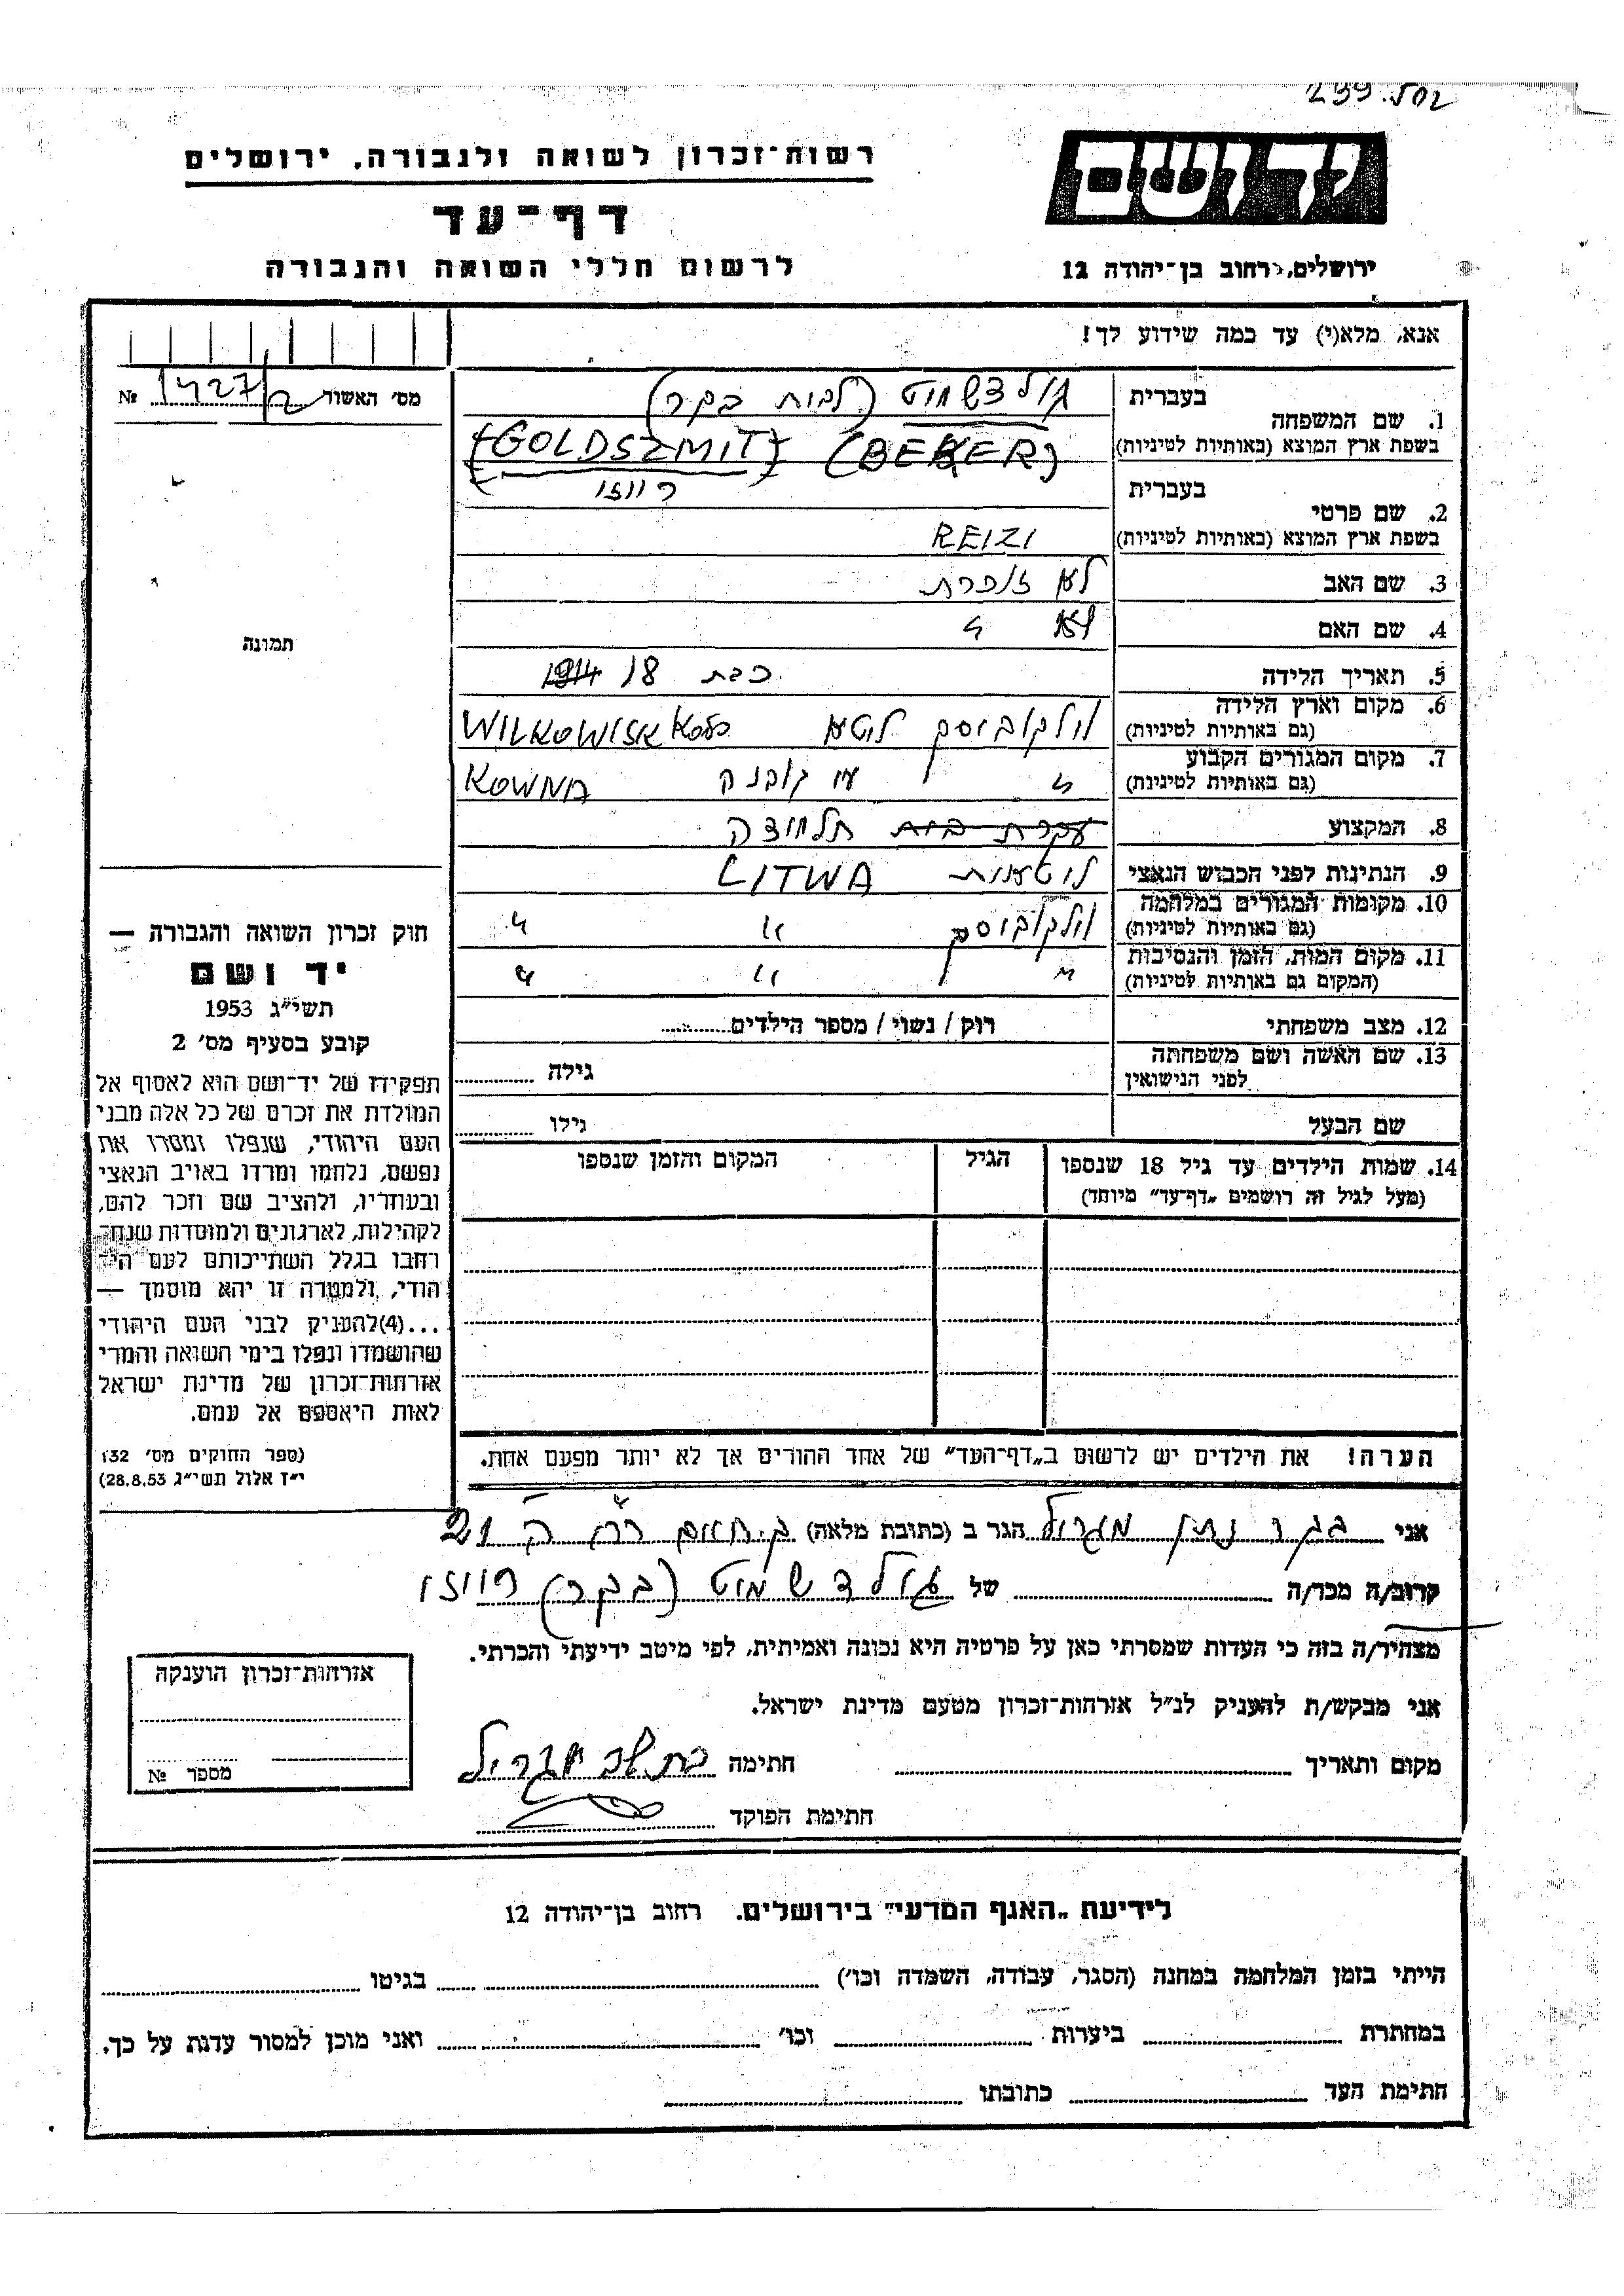 רשות־זכרון לשואה ולגבורה, ירושלים
יד ושם
דף־עד
לרשום חללי השואה והגבורה
ירושלים, רחוב בן־יהודה 12
אנא, מלא(י) עד כמה שידוע לך!
מס׳ האשור № 1427/2
1. שם המשפחה
בעברית גולדשמיט (לבית בקר)
בשפת ארץ המוצא (באותיות לטיניות) (GOLDSZMIT) (BEKER)
2. שם פרטי
בעברית רייזי
בשפת ארץ המוצא (באותיות לטיניות) REIZI
3. שם האב לא זוכרת
4. שם האם לא "
5. תאריך הלידה כבת 18 1914
6. מקום וארץ הלידה
(גם באותיות לטיניות) וילקוביסק ליטא
7. מקום המגורים הקבוע
(גם באותיות לטיניות) " ע״י קובנה KOWNA
8. המקצוע עקרת בית תלמידה
9. הנתינות לפני הכבוש הנאצי ליטאית LITWA
10. מקומות המגורים במלחמה
(גם באותיות לטיניות) וילקוביסק " "
11. מקום המות, הזמן והנסיבות
(המקום גם באותיות לטיניות) " " "
12. מצב משפחתי רוק / נשוי / מספר הילדים
13. שם האשה ושם משפחתה
לפני הנישואין גילה
שם הבעל גילו
14. שמות הילדים עד גיל 18 שנספו
(מעל לגיל זה רושמים „דף־עד״ מיוחד)
הגיל
המקום והזמן שנספו
הערה! את הילדים יש לרשום ב„דף־העד״ של אחד ההורים אך לא יותר מפעם אחת.
תמונה
חוק זכרון השואה והגבורה —
יד ושם
תשי״ג 1953
קובע בסעיף מס׳ 2
תפקידו של יד־ושם הוא לאסוף אל
המולדת את זכרם של כל אלה מבני
העם היהודי, שנפלו ומסרו את
נפשם, נלחמו ומרדו באויב הנאצי
ובעוזריו, ולהציב שם וזכר להם,
לקהילות, לארגונים ולמוסדות שנח־
רחבו בגלל השתייכותם לעם הי־
הודי, ולמטרה זו יהא מוסמך —
...(4)להעניק לבני העם היהודי
שהושמדו ונפלו בימי השואה והמרי
אזרחות־זכרון של מדינת ישראל
לאות היאספם אל עמם.
(ספר החוקים מס׳ 132
י״ז אלול תשי״ג 28.8.53)
אני מגריל הגר ב (כתובת מלאה) 21
קרוב/ה מכר/ה של גולדשמיט (בקר) רייזי
מצהיר/ה בזה כי העדות שמסרתי כאן על פרטיה היא נכונה ואמיתית, לפי מיטב ידיעתי והכרתי.
אני מבקש/ת להעניק לנ״ל אזרחות־זכרון מטעם מדינת ישראל.
מקום ותאריך חתימה מגריל
חתימת הפוקד
אזרחות־זכרון הוענקה
מספר №
לידיעת „האגף המדעי״ בירושלים. רחוב בן־יהודה 12
הייתי בזמן המלחמה במחנה (הסגר, עבודה, השמדה וכו׳) בגיטו
במחתרת ביערות וכו׳ ואני מוכן למסור עדות על כך.
חתימת העד כתובתו